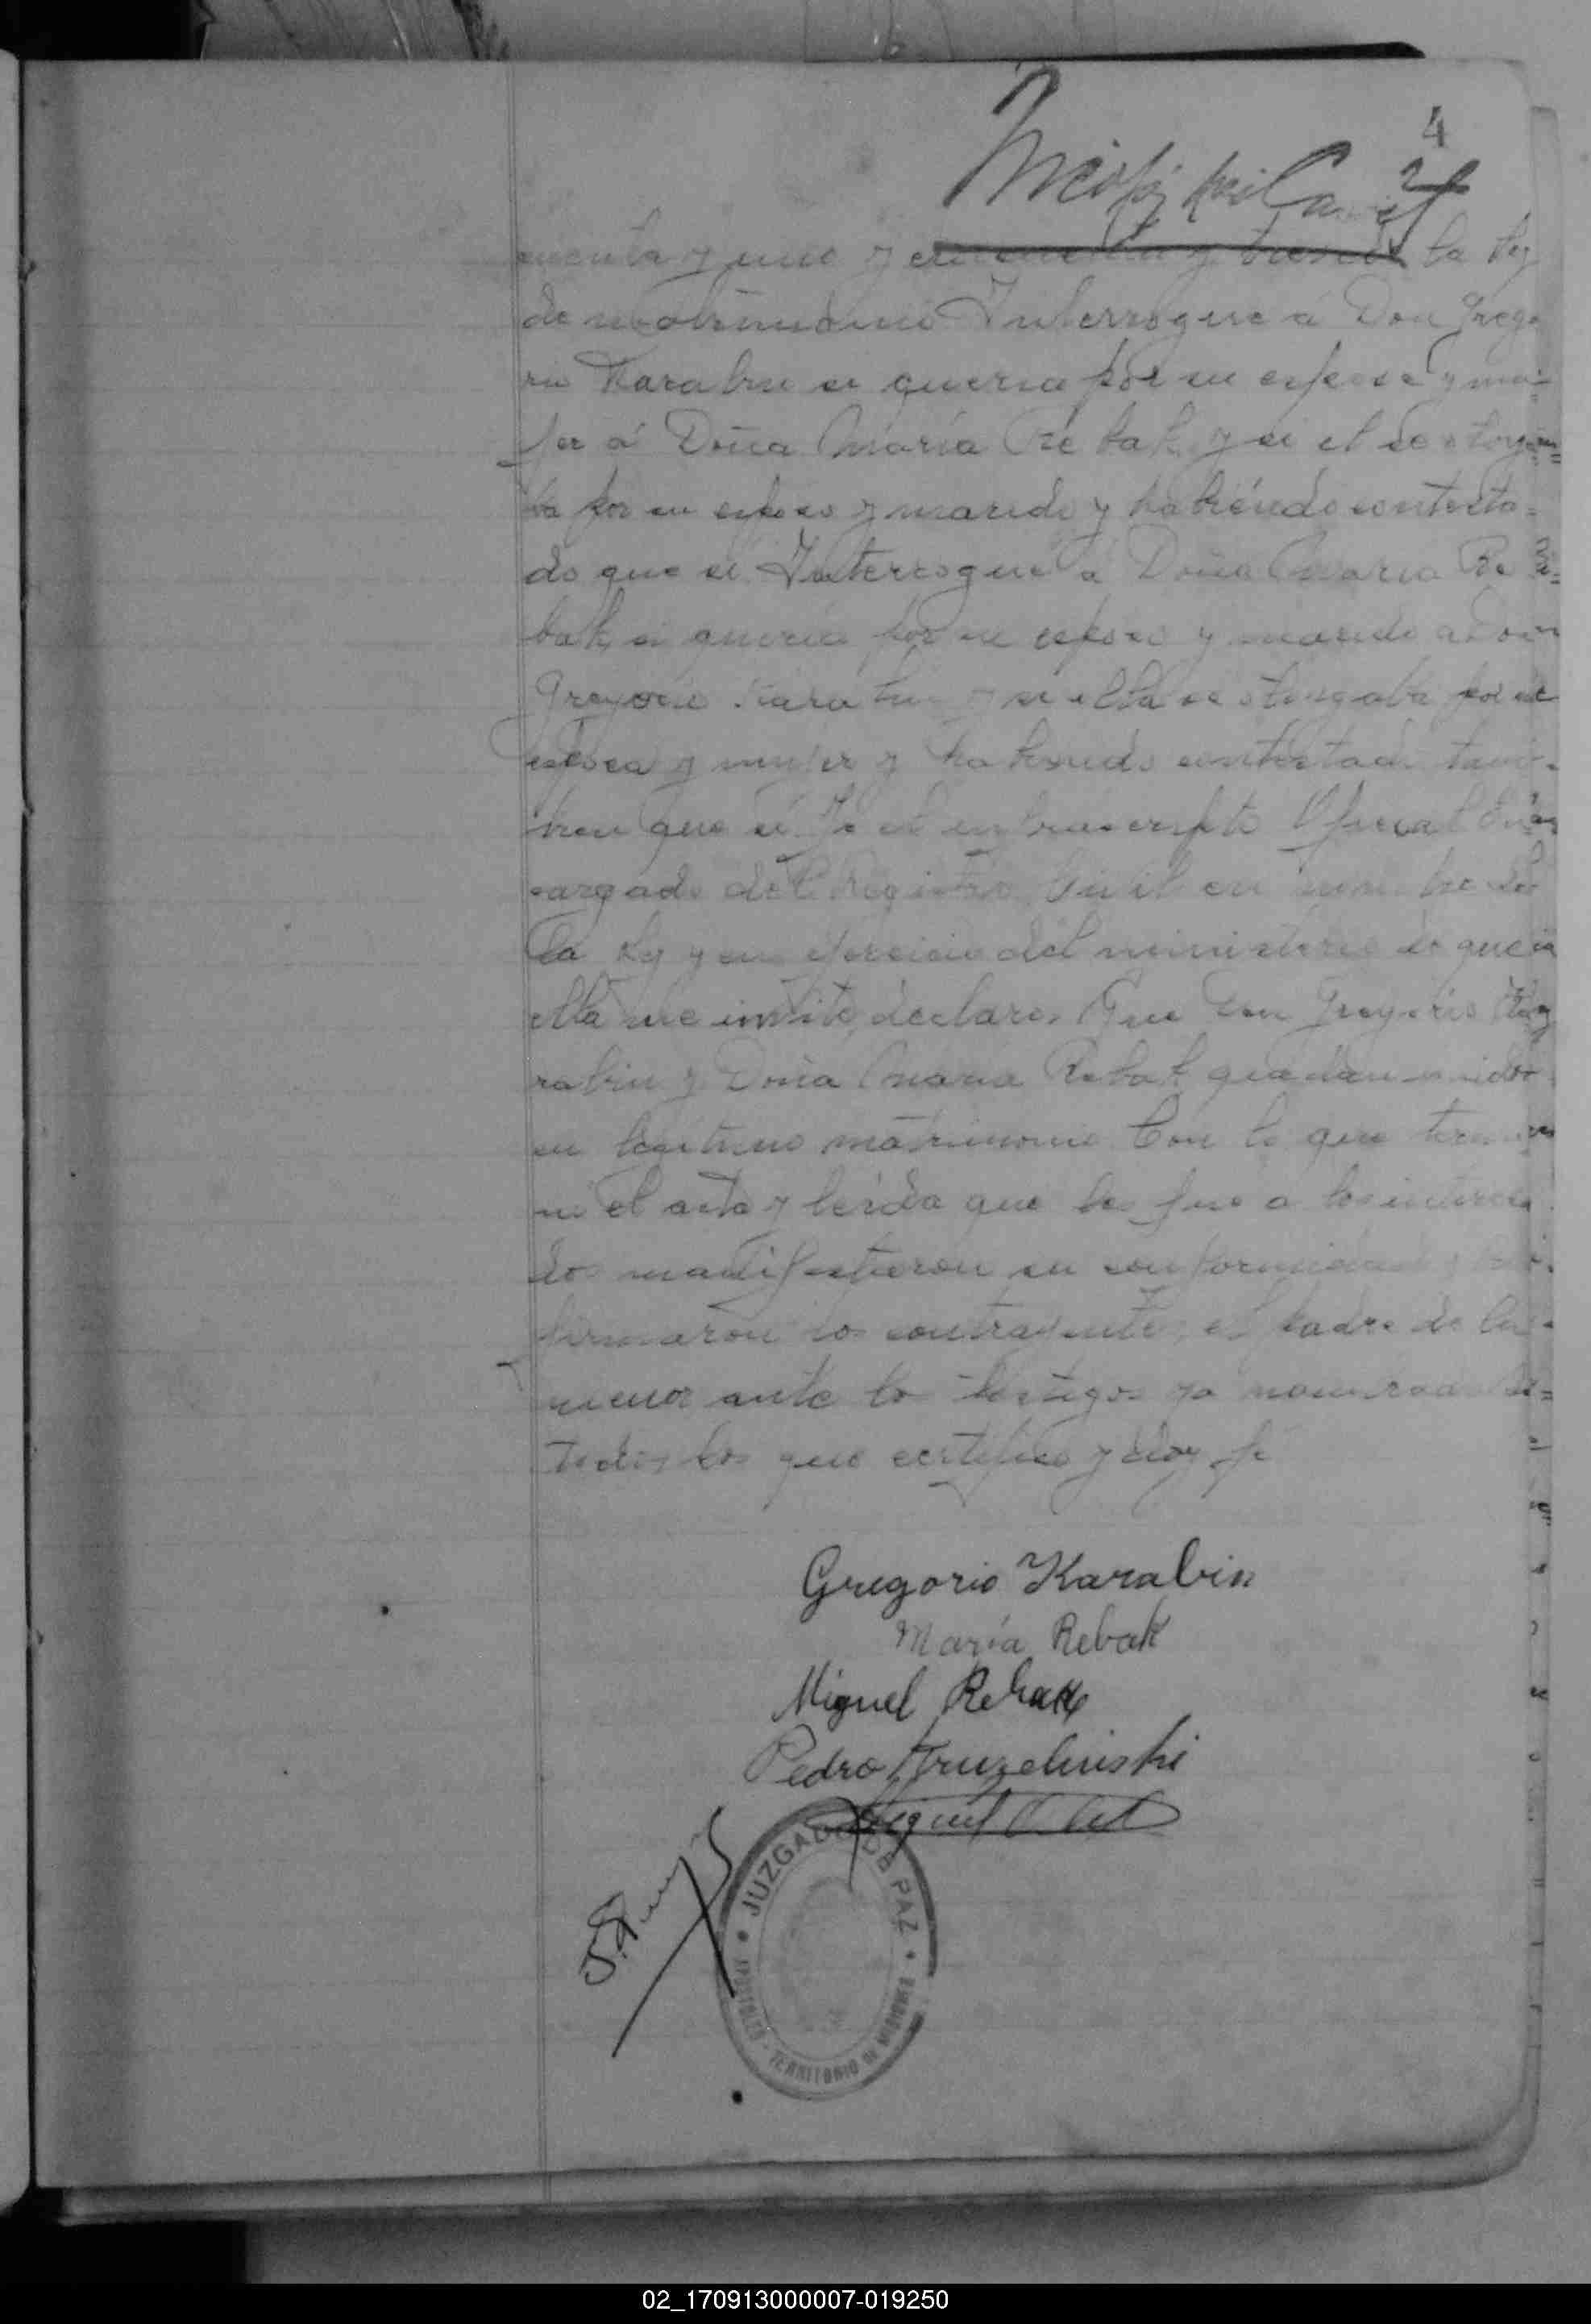 4
cuenta y uno y cincuenta y tres de la ley
de matrimonio Interrogue á Don Grego
rio Karabin si queria por su esposa y mu-
jer á Doña María Rebak y si el se otorga
ba por su esposo y marido y habiendo contesta-
do que si. Interrogue á Doña Maria Re
bak si queria por su esposo y marido a Don
Gregorio Karabin y si ella se otorgaba por su
esposa y mujer y habiendo contestado tam-
bien que si. Yo el infrascripto Oficial En
cargado del Registro Civil en nombre de
la ley y en ejercicio del ministerio de que
ella me invite, declaro. Que Don Gregorio Ka
rabin y Doña Maria Rebak quedan unidos
en legitimo matrimonio. Con lo que termi
nó el acto y leida que les fue a los interesa
dos manifestaron su conformidad y
firmaron los contrayentes, el padre de la
menor ante los testigos ya nombrados de
todos los que certifico y doy fé
Gregorio Karabin
María Rebak
Miguel Rebak
Pedro Kruzelinski
Miguel
JUZGADO DE PAZ
APOSTOLES - TERRITORIO DE MISIONES
02_170913000007-019250